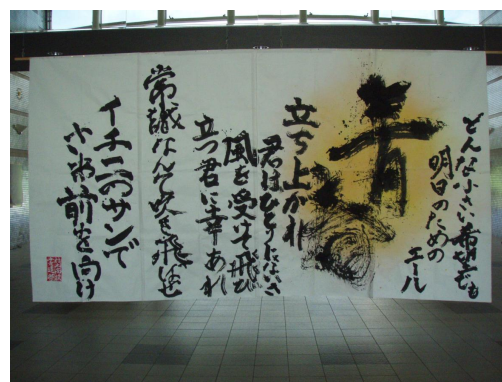 どんな小さい希望でも
明日のための
エール
青春
立ち上がれ
君はひとりじゃないさ
風を受けて飛び
立つ君に幸あれ
常識なんて吹き飛ばせ
イチニのサンで
さあ前を向け